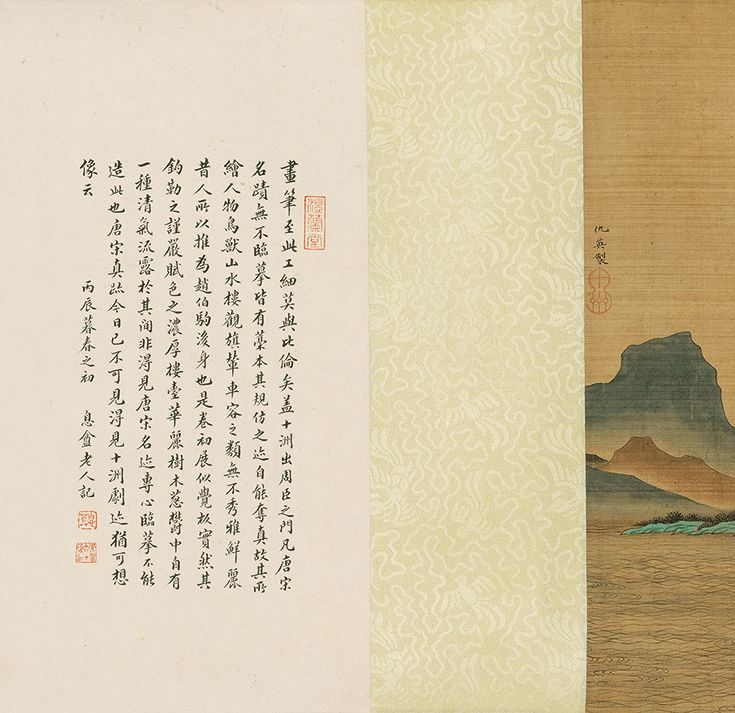 仇英製
十州
畫筆至此工細莫與比倫矣蓋十洲出周臣之門凡唐宋
名蹟無不臨摹皆有藁本其規仿之迹自能奪真故其所
繪人物鳥獸山水樓觀旗輦車容之類無不秀雅鮮麗
昔人所以推為趙伯駒後身也是卷初展似覺板實然其
鈎勒之謹嚴賦色之濃厚樓臺華麗樹木蔥鬱中自有
一種清氣流露於其間非得見唐宋名迹專心臨摹不能
造此也唐宋真跡今日已不可見得見十洲劇迹猶可想
像云 丙辰暮春之初 息盦老人記